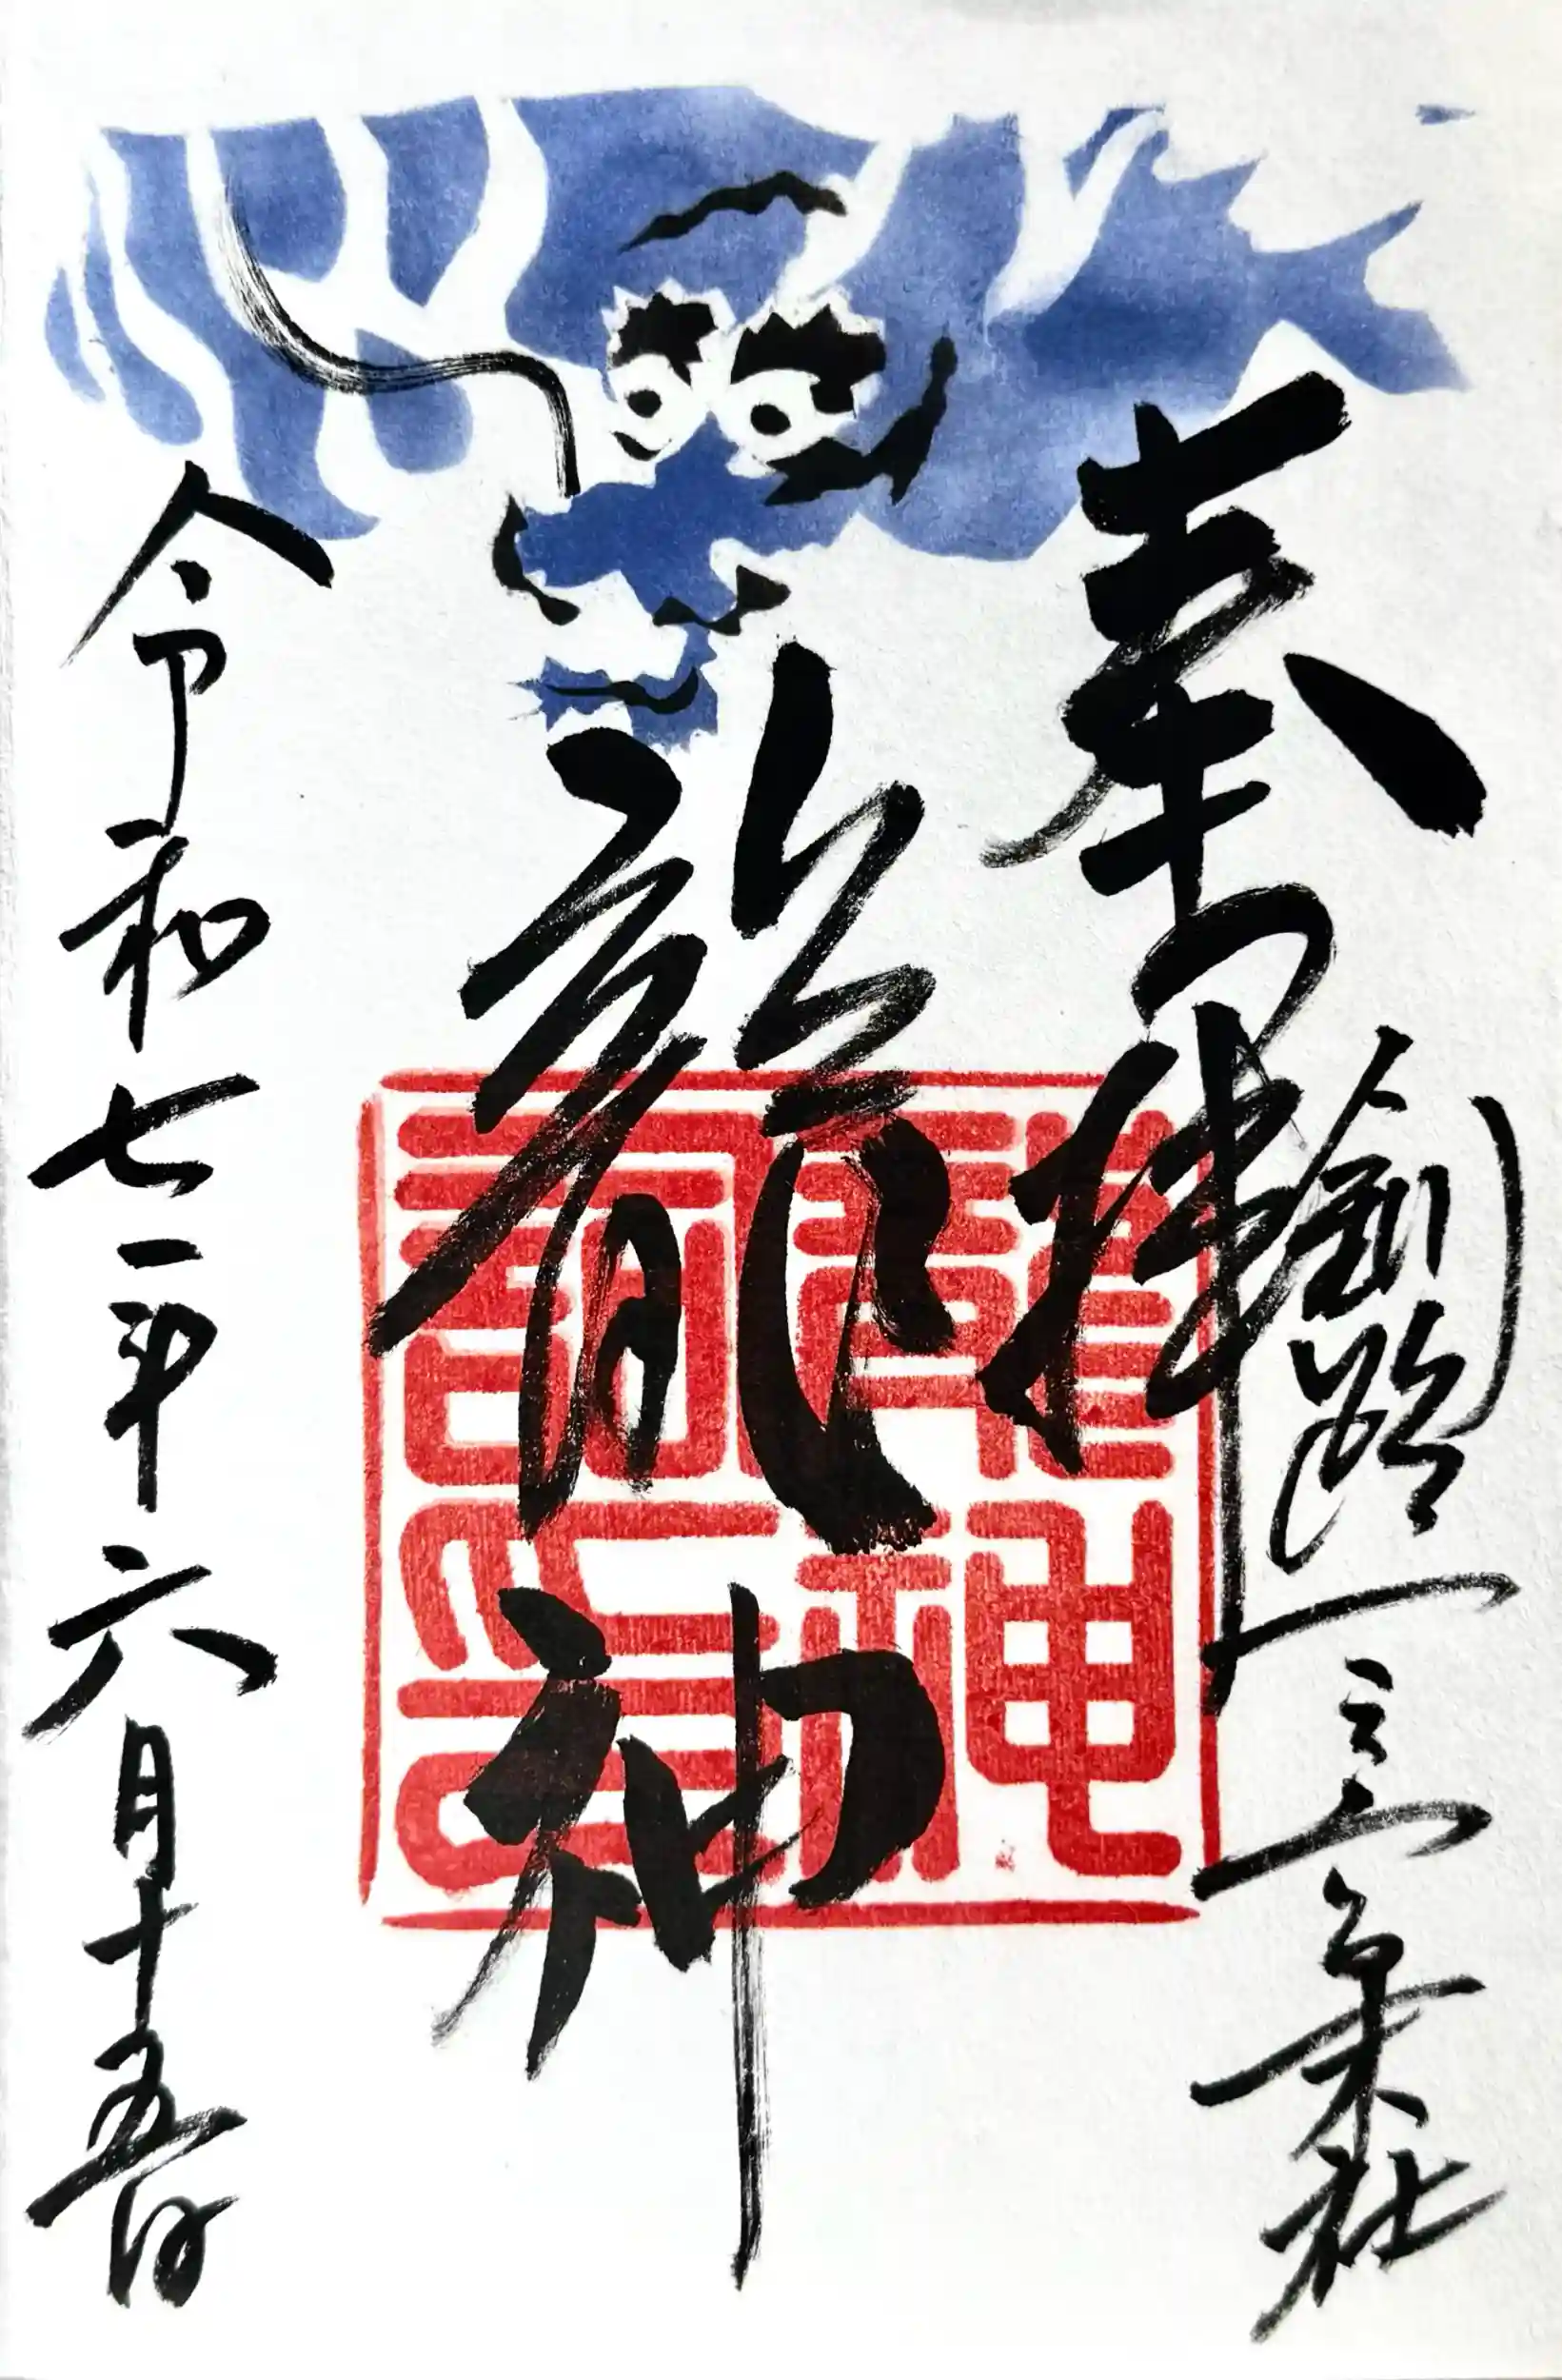 奉拝
釧路一之宮末社
龍神
龍神
印
令和七年六月十五日